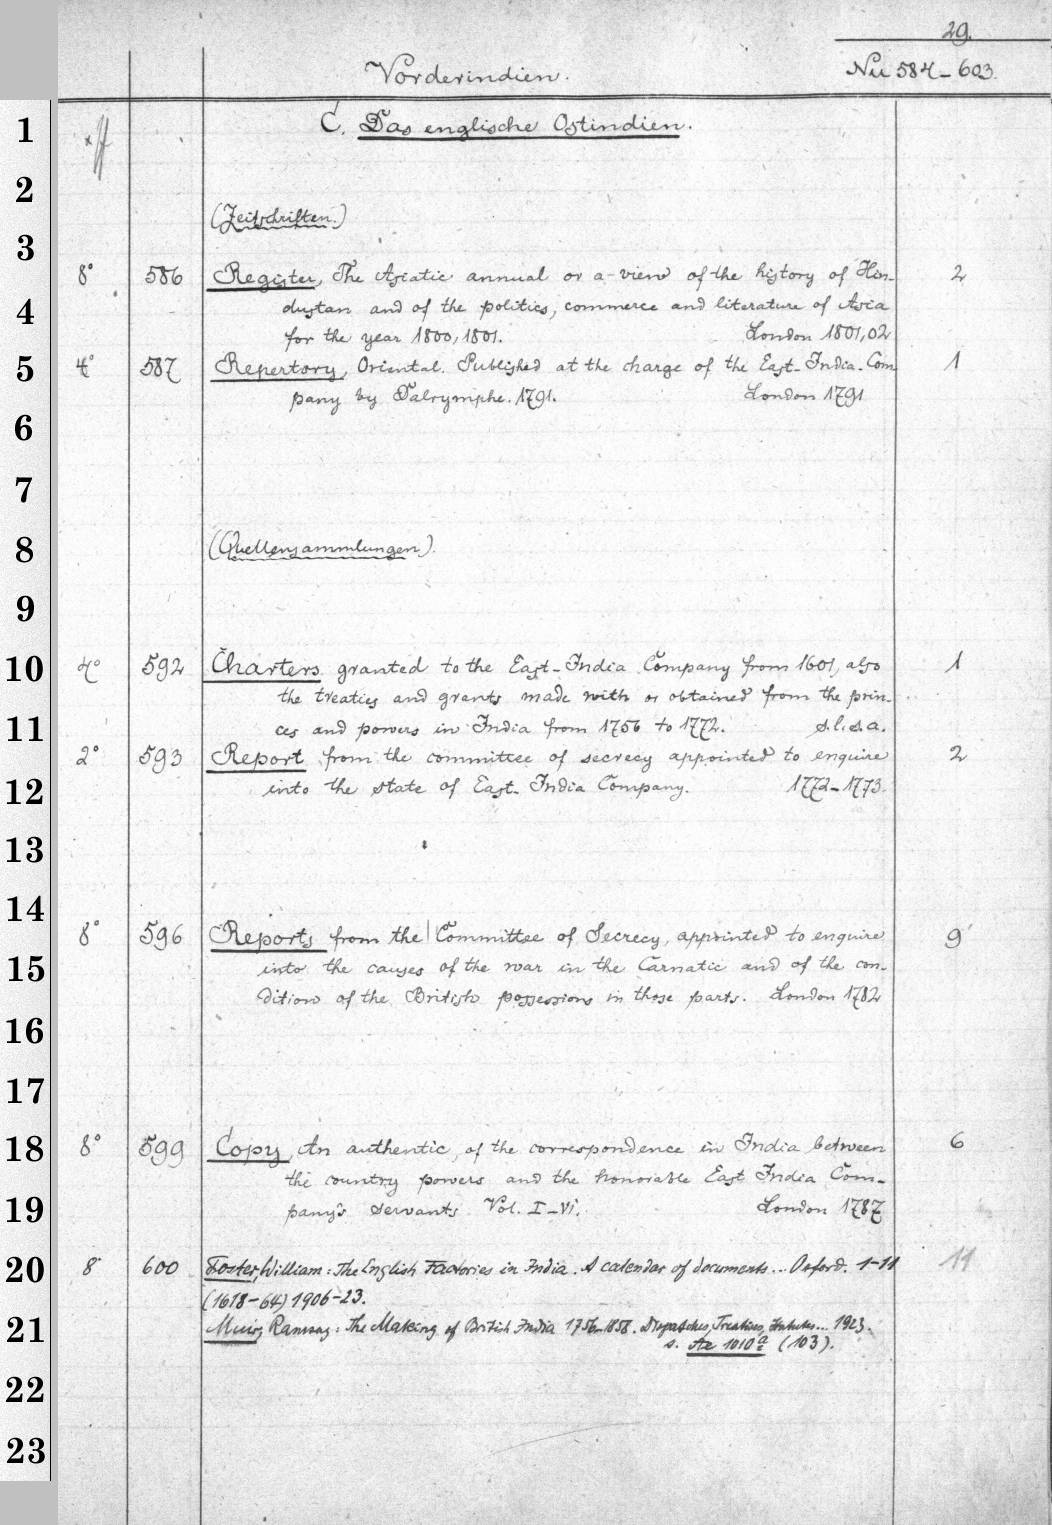 29.
Vorderindien. Nu 584-603.
1
C. Das englische Ostindien.
2
(Zeitschriften.)
3
8° 586 Register, The Asiatic annual or a view of the history of Hin-
4 dustan and of the politics, commerce and literature of Asia 2
for the year 1800, 1801. London 1801,02
5 4° 587 Repertory, Oriental. Published at the charge of the East-India-Com 1
pany by Dalrymphe. 1791. London 1791
6
7
8 (Quellensammlungen).
9
10 4° 592 Charters granted to the East-India Company from 1601, also 1
the treaties and grants made with or obtained from the prin-
11 ces and powers in India from 1756 to 1772. s.l.e.a.
2° 593 Report from the committee of secrecy appointed to enquire 2
12 into the state of East-India Company. 1772-1773.
13
14
8° 596 Reports from the Committee of Secrecy, appointed to enquire 9
15 into the causes of the war in the Carnatic and of the con-
dition of the British possessions in those parts. London 1782
16
17
18 8° 599 Copy, An authentic, of the correspondence in India between 6
the country powers and the honorable East India Com-
19 pany's servants Vol. I-VI. London 1787
20 8 600 Foster, William: The English Factories in India. A calendar of documents... Oxford. 1-11 11
(1618-64) 1906-23.
21 Muir, Ramsay: The Making of British India 1756-1858. Dispatches, Treatises, Statutes... 1923.
s. Az 1010ª (103).
22
23